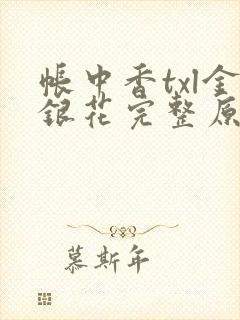 帐中香txl金
银花完整原
慕斯年